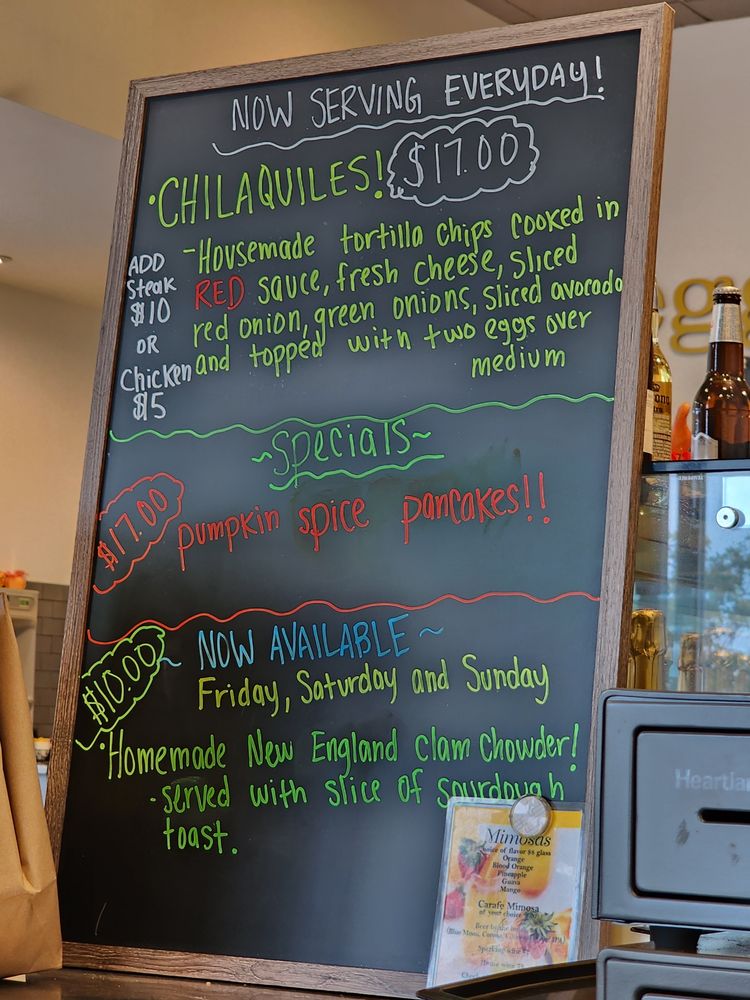 NOW SERVING EVERYDAY!
·CHILAQUILES! $17.00
-Housemade tortilla chips cooked in
RED sauce, fresh cheese, sliced
red onion, green onions, sliced avocado
and topped with two eggs over
medium
ADD
Steak
$10
OR
Chicken
$5
~Specials~
$17.00 pumpkin spice pancakes!!
~ NOW AVAILABLE ~
$10.00 Friday, Saturday and Sunday
·Homemade New England Clam Chowder!
-served with slice of sourdough
toast.
Mimosas
choice of flavor $8 glass
Orange
Blood Orange
Pineapple
Guava
Mango
Carafe Mimosa
of your choice
Beer
(Blue Moon,
egg
Heartlan